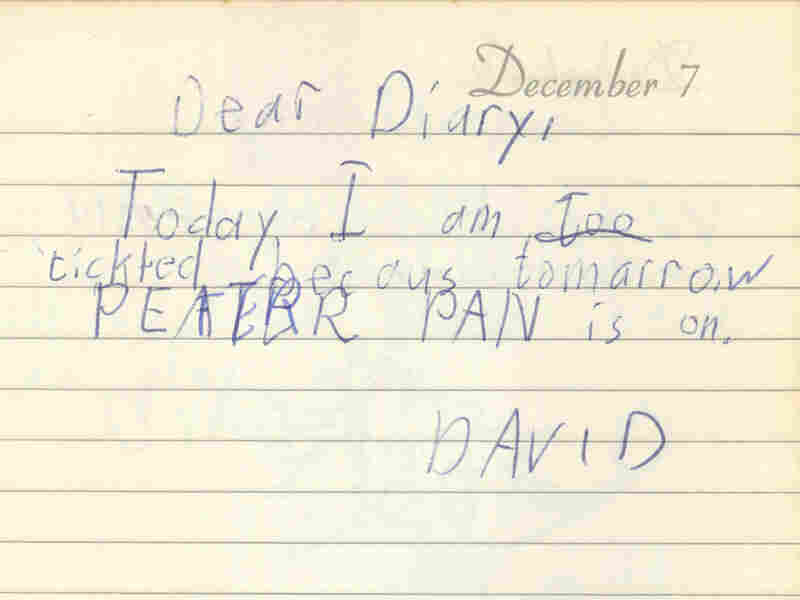 December 7
Dear Diary,
Today I am too
tickted becaus tomarrow
PEATER PAN is on.
DAVID